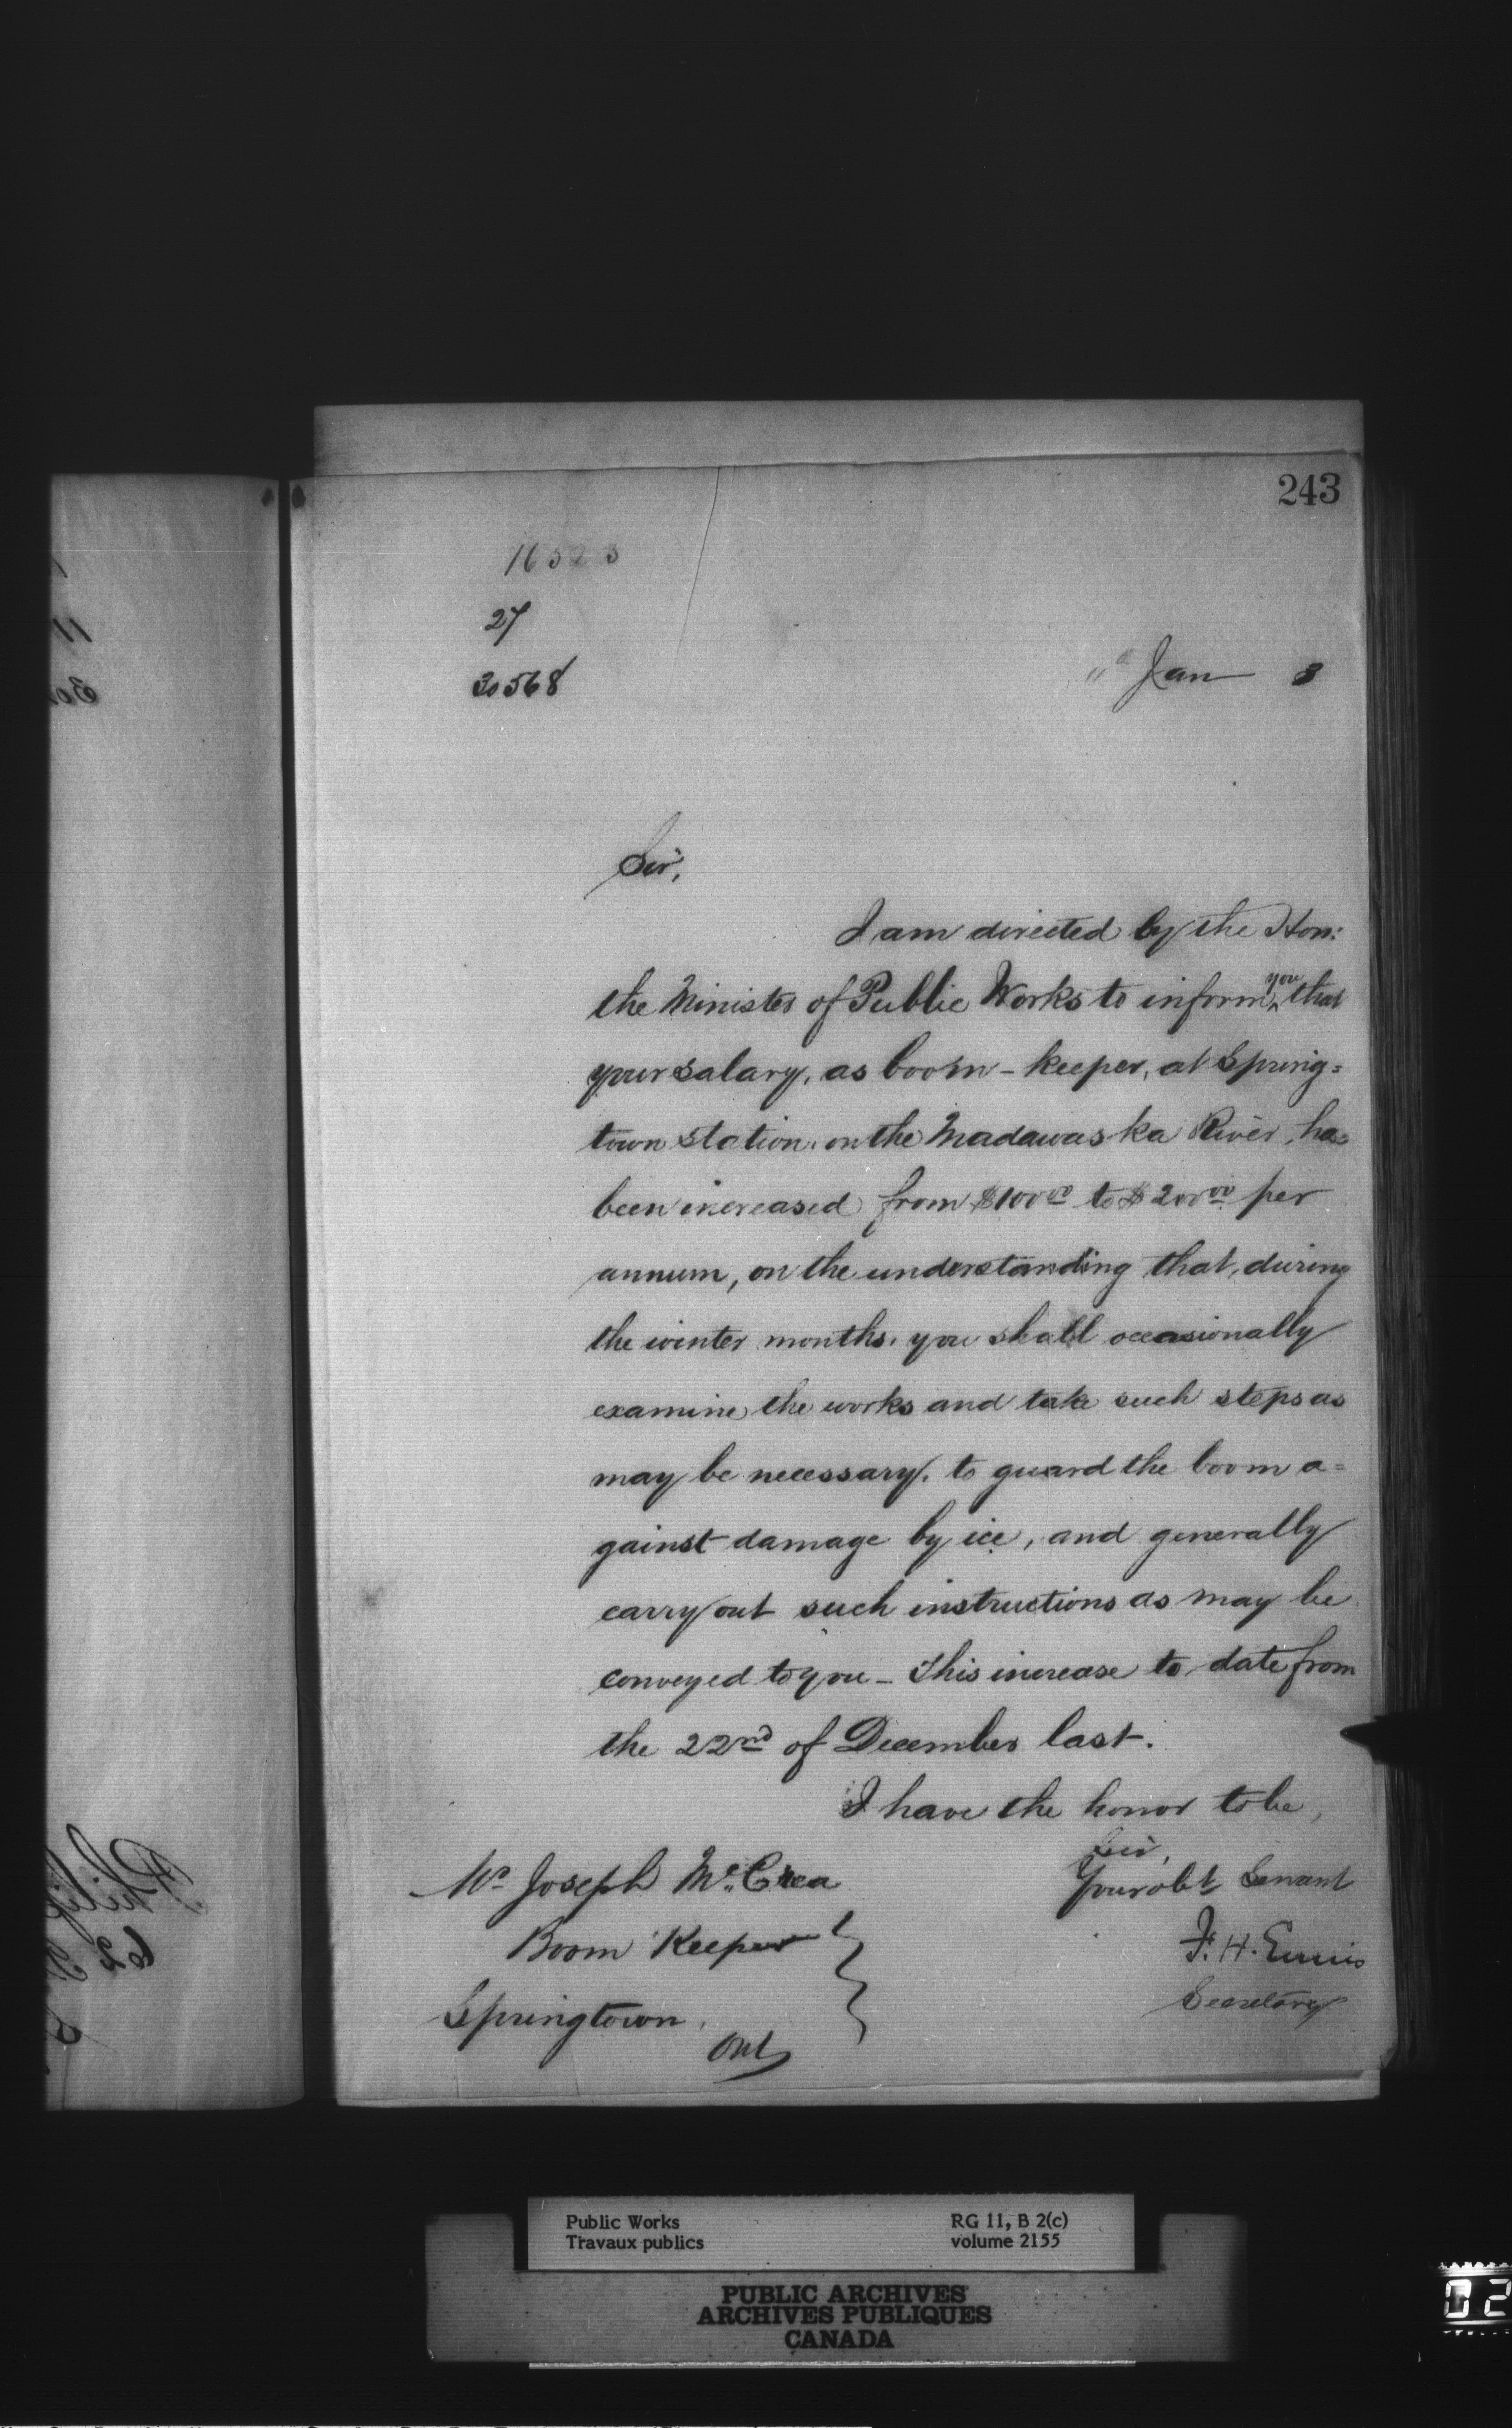 243
16523
27
30568
11th Jan 3
Sir,
I am directed by the Hon:
the Minister of Public Works to inform you that
your salary, as boom-keeper, at Spring=
town station, on the Madawaska River, has
been increased from $100.00 to $200.00 per
annum, on the understanding that, during
the winter months, you shall occasionally
examine the works and take such steps as
may be necessary, to guard the boom a=
gainst damage by ice, and generally
carry out such instructions as may be
conveyed to you - This increase to date from
the 22nd of December last.
I have the honor to be,
Sir,
Your obt Servant
F. H. Ennis
Secretary
Mr Joseph McCrea
Boom Keeper
Springtown
Ont
Public Works
Travaux publics
RG 11, B 2(c)
volume 2155
PUBLIC ARCHIVES
ARCHIVES PUBLIQUES
CANADA
02